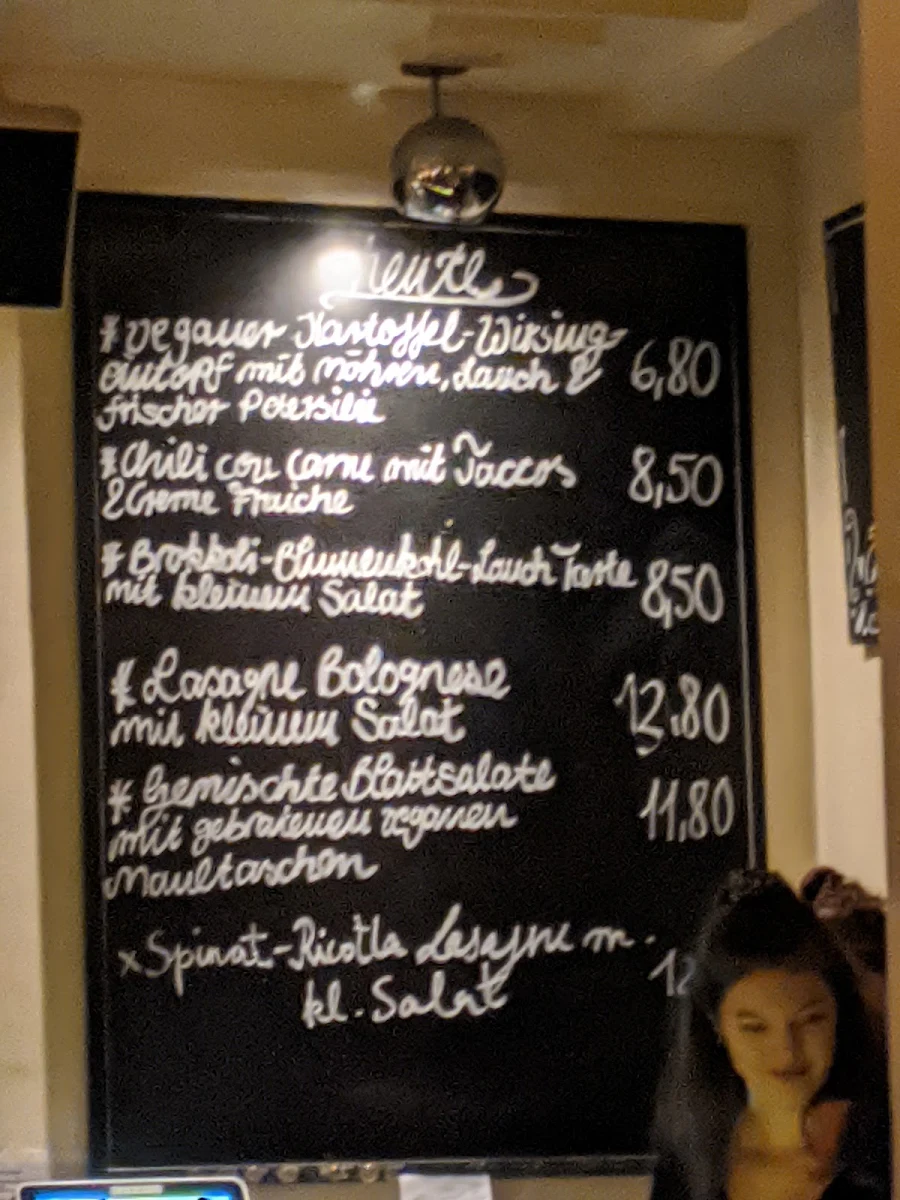 Heute
* veganer Kartoffel-Wirsing-
eintopf mit Möhren, Lauch & 6,80
frischer Petersilie
* Chili con Carne mit Taccos 8,50
& Creme Fraiche
* Brokkoli-Blumenkohl-Lauch Tarte 8,50
mit kleinem Salat
* Lasagne Bolognese
mit kleinem Salat 12,80
* Gemischte Blattsalate
mit gebratenen veganen 11,80
Maultaschen
x Spinat-Ricotta Lasagne m.
kl. Salat